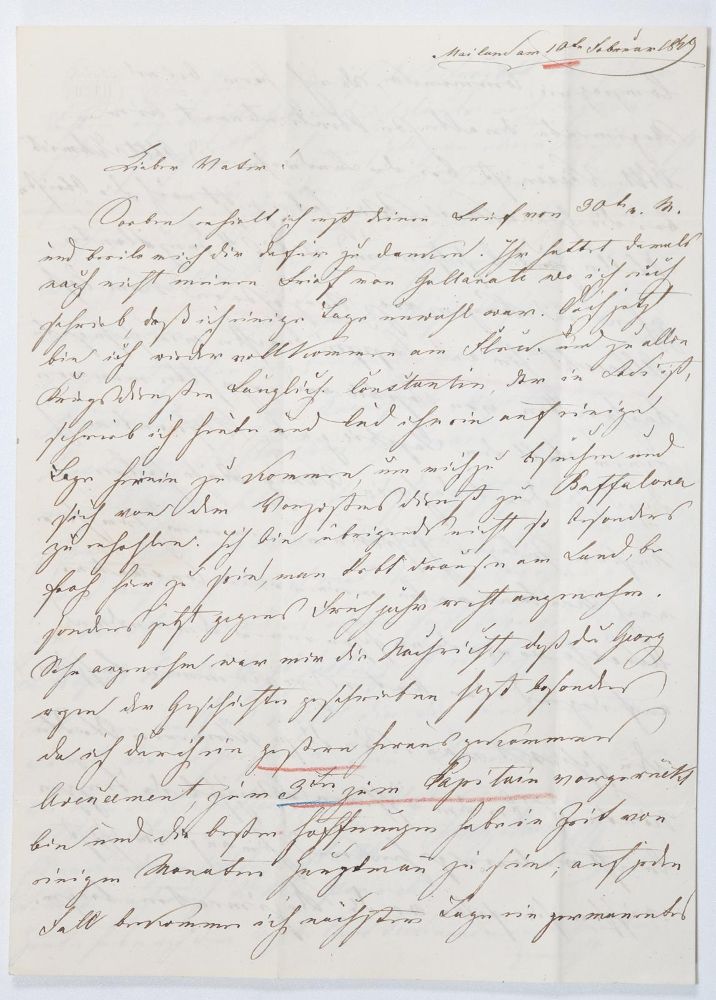 Mailand am 10ten Februar 1849
Lieber Vater!
Soeben erhielt ich erst deinen Brief vom 30ten v. M.
und beeile mich dir dafür zu danken. Ihr hattet damals
noch nicht meinen Brief von Gallarate wo ich euch
schrieb, daß ich einige Tage unwohl war. Doch jetzt
bin ich wieder vollkommen am Fleck und zu allen
Kriegsdiensten tauglich. Constantin, der in ist,
schrieb ich heute und lud ihn ein auf einige
Tage herein zu kommen, um mich zu besuchen und
sich von dem Vorpostensdienst zu Buffalora
zu erhohlen. Ich bin übrigends nicht so besonders
froh hier zu sein, man lebt draußen am Land, be
sonders jetzt gegens Frühjahr recht angenehm.
Sehr angenehm war mir die Nachricht, daß du Georg
wegen der Geschichte geschrieben hast besonders
da ich durch ein gestern herausgekommenes
Avencement, zum 3ten zum Kapitain vorgerückt
bin und die besten Hoffnungen habe in Zeit von
einigen Monaten Hauptmann zu sein; auf jeden
Fall bekomme ich nächster Tage ein permanentes